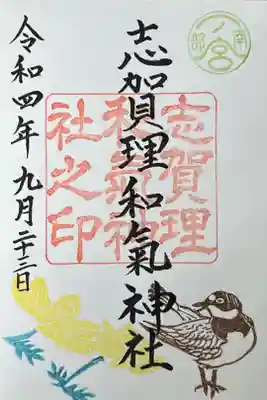 南部
一ノ宮
志賀理和氣神社
志賀理
和氣神
社之印
令和四年九月二十三日